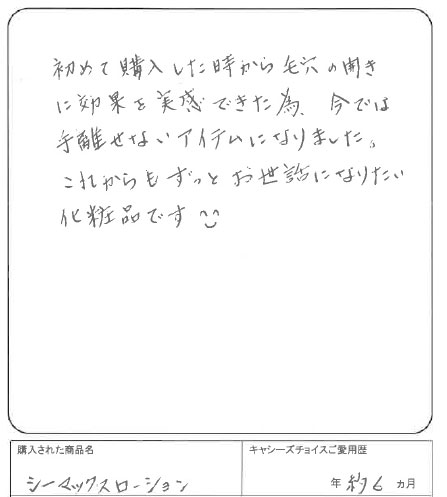 初めて購入した時から毛穴の開き
に効果を実感できた為、今では
手離せないアイテムになりました。
これからもずっとお世話になりたい
化粧品です
購入された商品名
シーマックスローション
キャシーズチョイスご愛用歴
年 約6 カ月